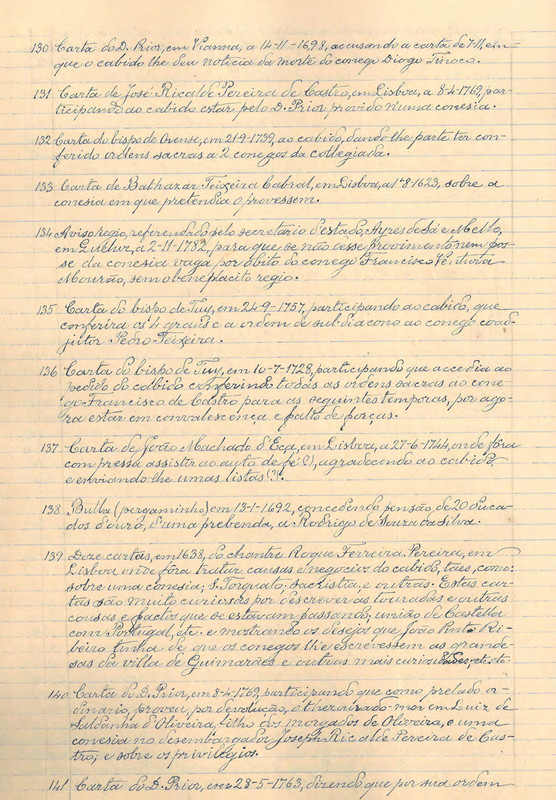 130 Carta do D. Prior, em Vianna, a 14-11-1698, accusando a carta de 7-11, em
que o cabido lhe deu noticia da morte do conego Diogo Tinoco.
131 Carta de José Ricalde Pereira de Castro, em Lisboa, a 8-4-1769, par-
ticipando ao cabido estar pelo D. Prior provido n'uma conesia.
132 Carta do bispo de Orense, em 21-9-1739, ao cabido, dando-lhe parte ter con-
ferido ordens sacras a 2 conegos da collegiada.
133 Carta de Balthazar Teixeira Cabral, em Lisboa, a 1-8-1623, sobre a
conesia em que pretendia o provessem.
134 Aviso regio, referendado pelo secretario d'estado, Ayres de Sá e Mello,
em Queluz, a 2-11-1782, para que se não desse provimento nem pos-
se da conesia vaga por obito do conego Francisco Ventura
Mourão, sem o beneplacito regio.
135 Carta do bispo de Tuy, em 24-9-1757, participando ao cabido, que
conferira os 4 graus e a ordem de subdiacono ao conego coad-
jutor Pedro Teixeira.
136 Carta do bispo de Tuy, em 10-7-1728, participando que accedia ao
pedido do cabido conferindo todas as ordens sacras ao cone-
go Francisco de Castro para as seguintes temporas, por ago-
ra estar em convalescença e falto de forças.
137 Carta de João Machado d'Eça, em Lisboa, a 27-6-1744, onde fôra
com pressa assistir ao auto de fé (?), agradecendo ao cabido
e enviando-lhe umas listas (?).
138 Bulla (pergaminho) em 13-1-1692, concedendo pensão, de 20 duca-
dos d'ouro, d'uma prebenda, a Rodrigo de Souza da Silva.
139 Doze cartas, em 1638, do chantre Roque Ferreira Pereira, em
Lisboa onde fôra tratar causas e negocios do cabido, taes, como:
sobre uma conesia; S. Torquato; sacristia, e outras. Estas car-
tas são muito curiosas por descrever as touradas e outras
cousas e factos que se estavam passando; união de Castella
com Portugal, etc. e mostrando os desejos que João Pinto Ri-
beiro tinha de que os conegos lhe escrevessem as grande-
sas da villa de Guimarães e outras mais curiosidades, etc. etc.
140 Carta do D. Prior, em 8-4-1769, participando que como prelado or-
dinario, proveu, por devolução, o thezourado-mór em Luiz de
Saldanha d'Oliveira, filho dos morgados de Oliveira, e uma
conesia no desembargador Joseph Ricalde Pereira de Cas-
tro; e sobre os privilegios.
141 Carta do D. Prior, em 28-5-1763, dizendo que por sua ordem